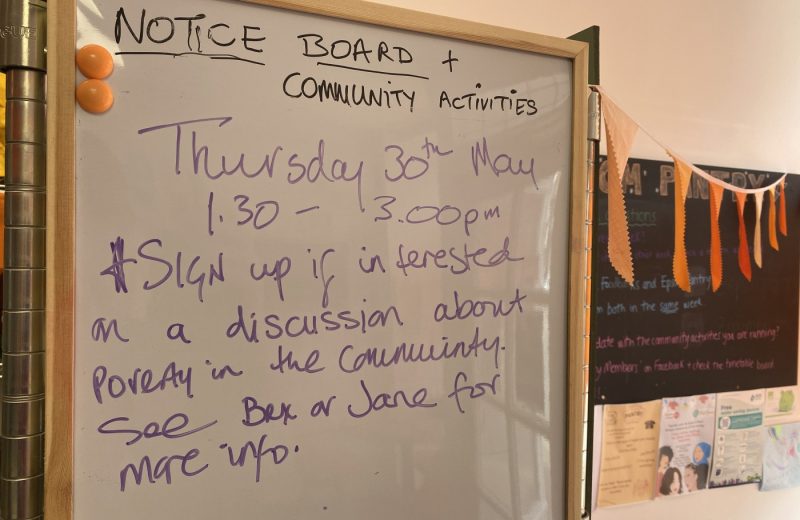 NOTICE BOARD +
COMMUNITY ACTIVITIES
Thursday 30th May
1.30 - 3.00pm
SIGN up if interested
in a discussion about
poverty in the Community.
See Bex or Jane for
more info.
OM PANTRY
in both in the same week.
date with the community activities you are running?
Members' on Facebook + check the timetable board